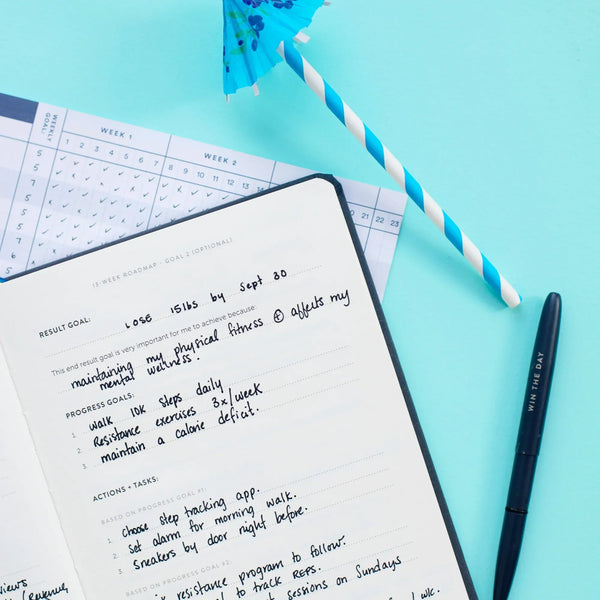 WEEKLY GOAL:
WEEK 1
WEEK 2
1 2 3 4 5 6 7 8 9 10 11 12 13 14
21 22 23
5
5
7
5
5
5
7
13-WEEK ROADMAP - GOAL 2 (OPTIONAL)
RESULT GOAL: LOSE 15lbs by Sept 30
This end result goal is very important for me to achieve because:
maintaining my physical fitness ⊕ affects my
mental wellness.
PROGRESS GOALS:
1. Walk 10K steps daily
2. Resistance exercises 3x/week
3. maintain a calorie deficit.
ACTIONS + TASKS:
BASED ON PROGRESS GOAL #1:
1. Choose step tracking app.
2. Set alarm for morning walk.
3. Sneakers by door right before.
BASED ON PROGRESS GOAL #2:
resistance program to follow.
to track REPS.
sessions on Sundays
/wk.
/Revenue,
WIN THE DAY